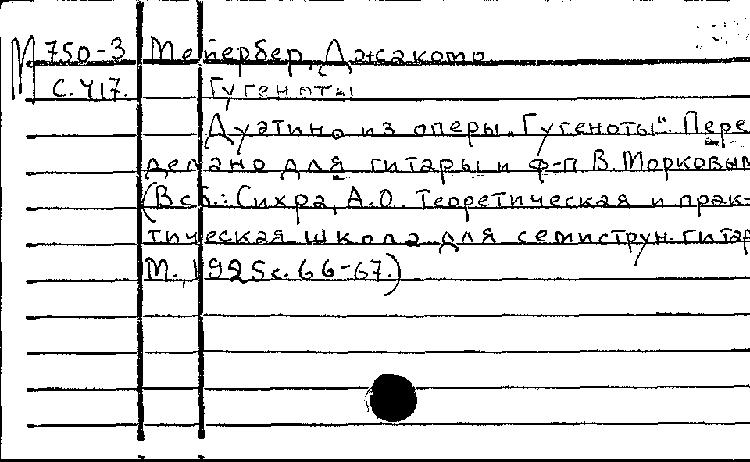 М 750-3 Мейербер, Джакомо
с. 417. Гугеноты
Дуэтино из оперы „Гугеноты“. Пере-
делано для гитары и ф-п В. Морковым
(В сб.: Сихра, А.О. Теоретическая и прак-
тическая школа для семиструн. гитар
М., 1925 с. 66-67.)